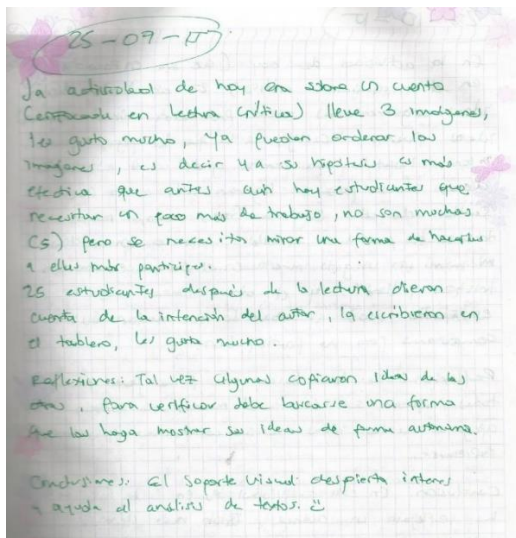 25-09-17
La actividad de hoy era sobre un cuento
(enfocada en Lectura crítica) lleve 3 imágenes,
les gusto mucho, ya pueden ordenar las
imagenes, es decir ya su respuesta es más
efectiva que antes aun hay estudiantes que
necesitan un poco más de trabajo, no son muchas
(5) pero se necesita mirar una forma de hacerlas
a ellas más participes.
25 estudiantes después de la lectura dieron
cuenta de la intención del autor, la escribieron en
el tablero, les gusta mucho.
Reflexiones: Tal vez algunas copiaron ideas de las
otras, para verificar debe buscarse una forma
que las haga mostrar sus ideas de forma autonoma.
Conclusiones: El soporte visual despierta interes
y ayuda al analisis de textos.